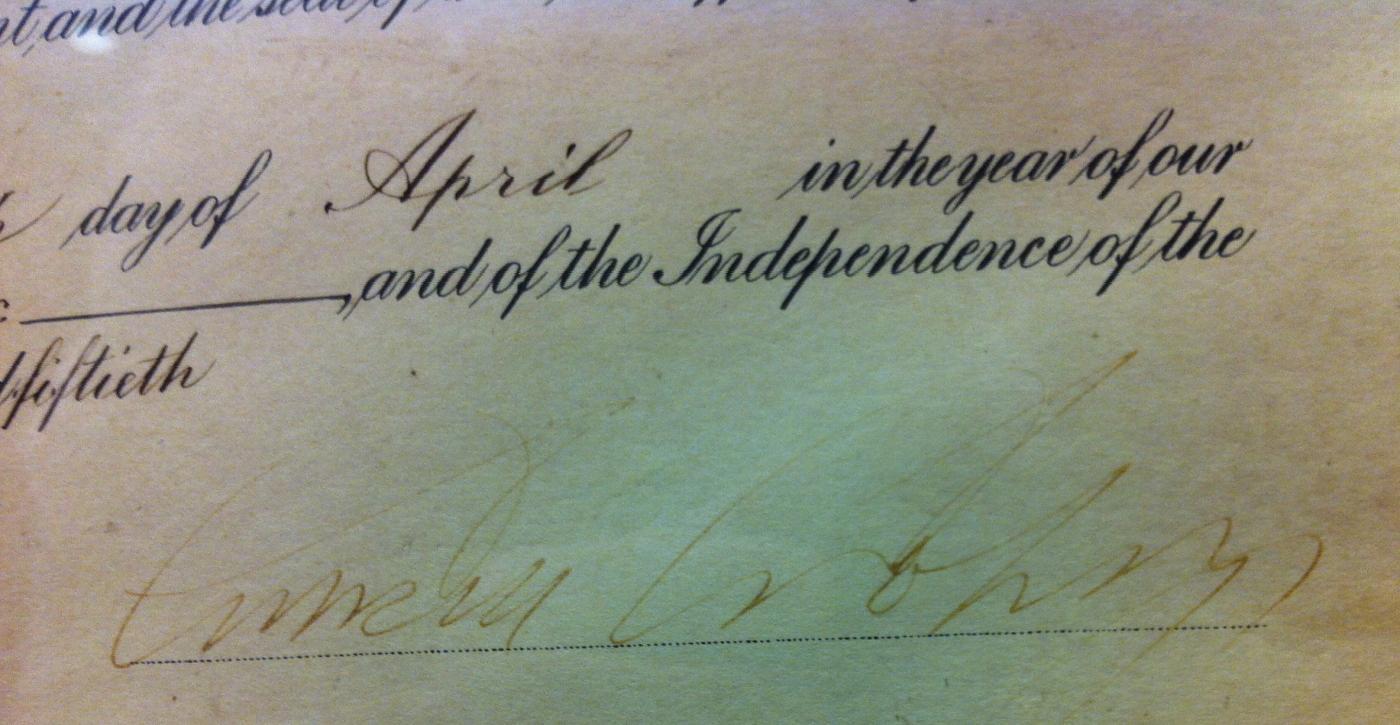 and the seal of
day of April in the year of our
, and of the Independence of the
fiftieth